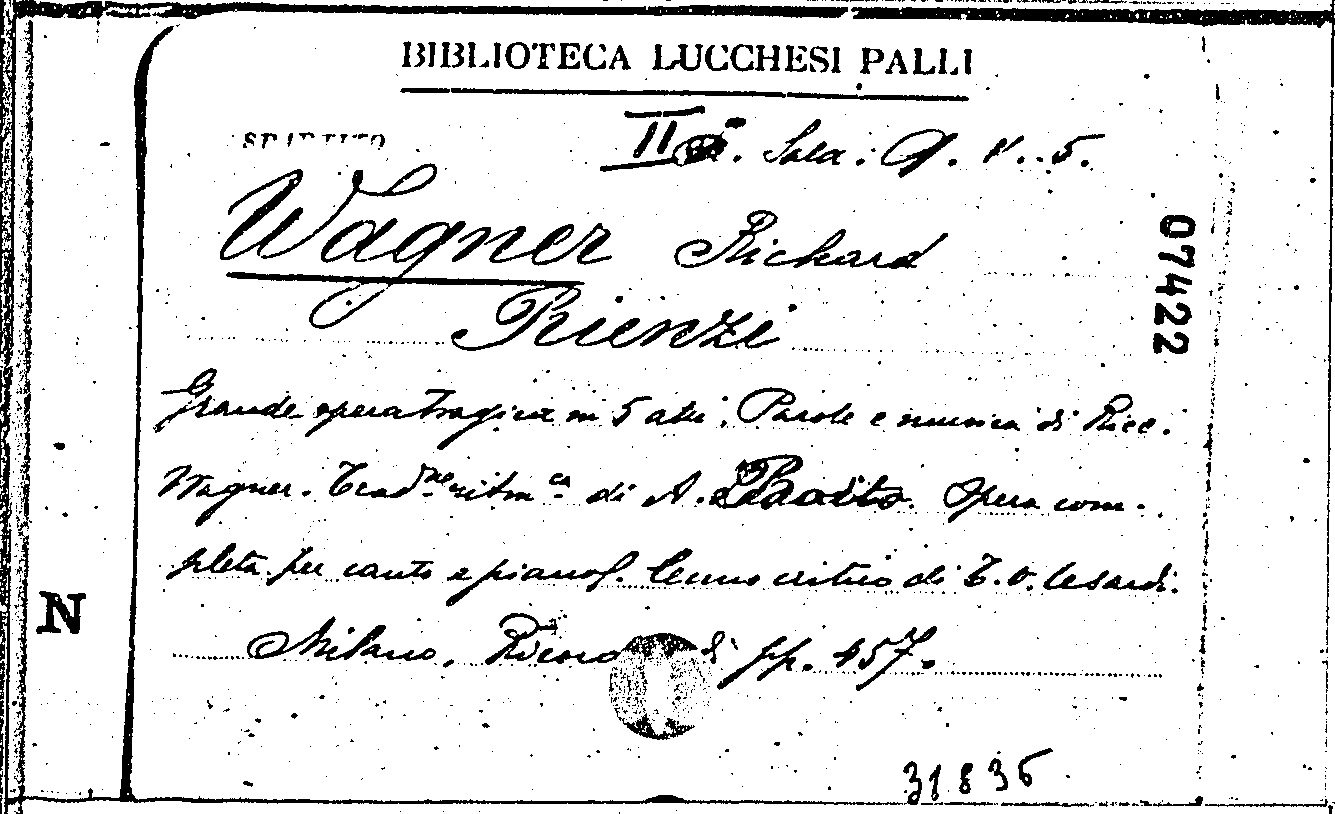 BIBLIOTECA LUCCHESI PALLI
SPARTITO
II Sala: Q. V. 5.
Wagner Richard
07422
Rienzi
Grande opera tragica in 5 atti. Parole e musica di Ricc.
Wagner. Trad.ne ritm.ca di A. Boito. Opera com-
pleta per canto e pianof. Cenno critico di T. O. Cesardi.
N
Milano, Ricordi pp. 457.
31836